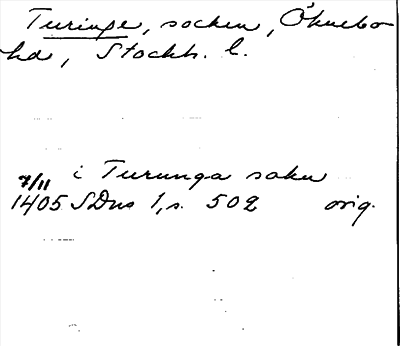 Turinge, socken, Öknebo
hd, Stockh. l.
7/11 i Turunga sokn
1405 SDns 1, s. 502 orig.